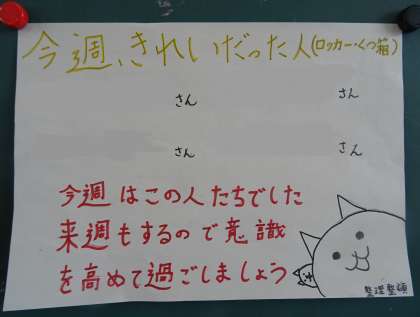 今週、きれいだった人(ロッカー・くつ箱)
さん さん
さん さん
今週はこの人たちでした
来週もするので意識
を高めて過ごしましょう
整理整頓